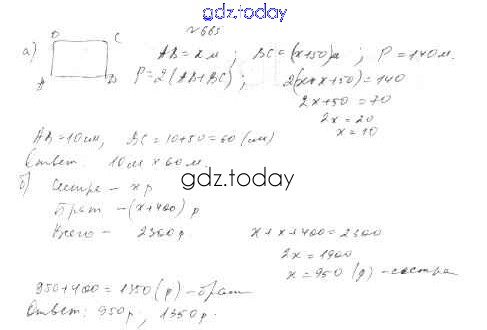 gdz.today
№665
а) B C AB = x м ; BC = (x+50) м ; P = 140 м.
A D P = 2(AB+BC) ; 2(x+x+50) = 140
2x+50 = 70
2x = 20
x = 10
AB = 10 см, BC = 10+50 = 60 (см)
Ответ: 10 м × 60 м.
gdz.today
б) Сестре – x р
Брат – (x+400) р
Всего – 2300 р. x + x + 400 = 2300
2x = 1900
x = 950 (р) – сестра
950+400 = 1350 (р) – брат
Ответ: 950 р, 1350 р.
gdz.today